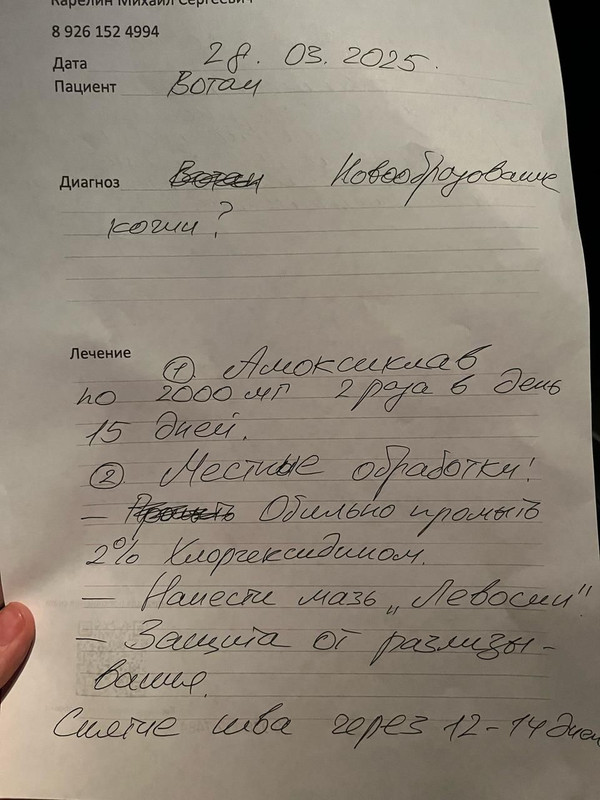 Карелин Михаил Сергеевич
8 926 152 4994
Дата 28. 03. 2025.
Пациент Вотан
Диагноз Вотан Новообразование
кожи?
Лечение ① Амоксиклав
по 2000 мг 2 раза в день
15 дней.
② Местные обработки!
– Промыть Обильно промыть
2% Хлоргексидином.
– Нанести мазь „Левосин"
– Защита от разлизы-
вания.
Снятие шва через 12-14 дней